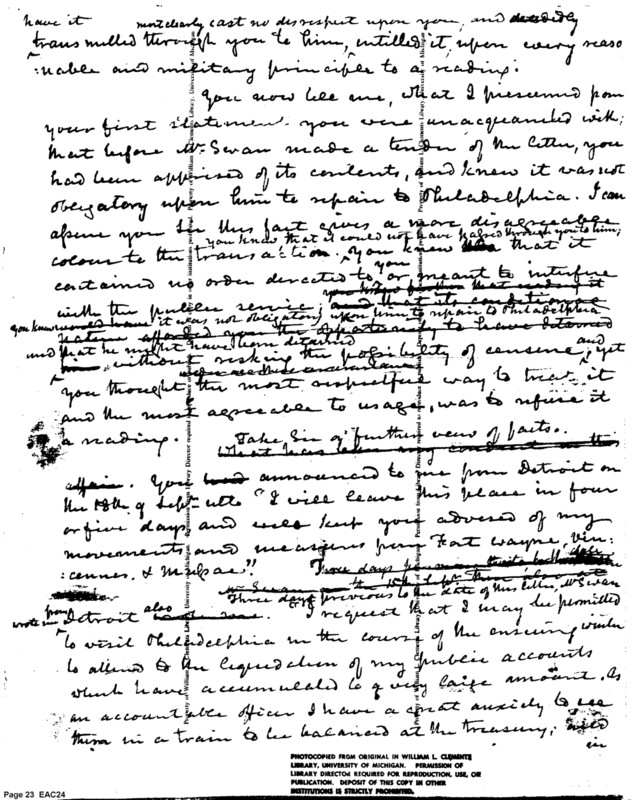 have it most clearly cast no disrespect upon you, and decidedly
transmitted through you to him, intitled it, upon every reaso
:nable and military principle to a reading.
You now tell me, what I presumed from
your first statement you were unacquainted with;
that before Mr. Swan made a tender of the letter, you
had been apprised of its contents, and knew it was not
obligatory upon him to repair to Philadelphia. I can
assure you Sir this fact gives a more disagreeable
colour to the transaction. you knew that it could not have passed through you to him;
you knew that it
contained no order directed to you or meant to interfere
with the public service; and that its
you knew it was not obligatory upon him to repair to Philadelphia
afforded you the opportunity to have detained
and that he might have been detained
without risking the possibility of censure; and yet
you thought the most respectful way to treat it
and the most agreeable to usage, was to refuse it
a reading. Take Sir a further view of facts.
What has been my conduct in this
affair. You had announced to me from Detroit on
the 18th of Septr. ulto "I will leave this place in four
or five days and will keep you advised of my
movements and measures from Fort Wayne, Vin:
:cennes, & Massac"
Three days previous to the date of this letter, Mr. Swan
wrote me from Detroit also I request that I may be permitted
to visit Philadelphia in the course of the ensuing winter
to attend to the liquidation of my public accounts
which have accumulated to a very large amount. As
an accountable officer I have a great anxiety to see
them in a train to be balanced at the treasury;
in
Property of William L. Clements Library, University of Michigan. Permission of Library Director required for reproduction, use, or publication.
PHOTOCOPIED FROM ORIGINAL IN WILLIAM L. CLEMENTS
LIBRARY, UNIVERSITY OF MICHIGAN. PERMISSION OF
LIBRARY DIRECTOR REQUIRED FOR REPRODUCTION, USE, OR
PUBLICATION. DEPOSIT OF THIS COPY IN OTHER
INSTITUTIONS IS STRICTLY PROHIBITED.
Page 23 EAC24